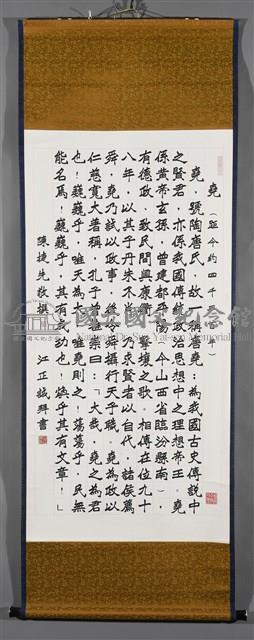 堯（距今約四千
堯，號陶唐氏，故一稱唐堯；為我國古史傳說中
之賢君，亦係我國傳統政治思想中之理想帝王。堯
係黃帝玄孫，曾建都平陽（今山西省臨汾縣南），
有德政，致民間興康衢擊壤之歌。相傳在位九十
八年，以其子丹朱不肖，求賢者以自代，諸侯薦
舜，堯乃試以政事，後令舜攝行天子職。堯為政以
仁慈寬大著稱，孔子嘗讚曰：「大哉，堯之為君
也！巍巍乎，唯天為大，唯堯則之！蕩蕩乎，民無
能名焉，巍巍乎，其有成功也！煥乎其有文章！」
陳捷先敬撰 江正誠拜書